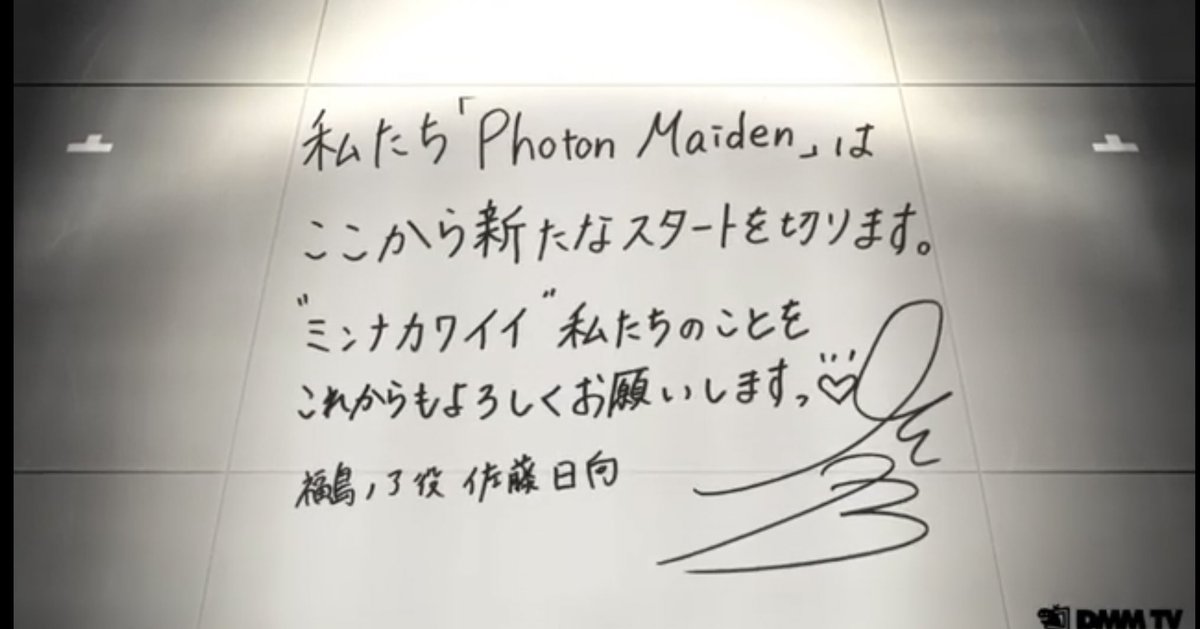 私たち「Photon Maiden」は
ここから新たなスタートを切ります。
"ミンナカワイイ"私たちのことを
これからもよろしくお願いしますっ♡
福島ノア役 佐藤日向
DMM TV